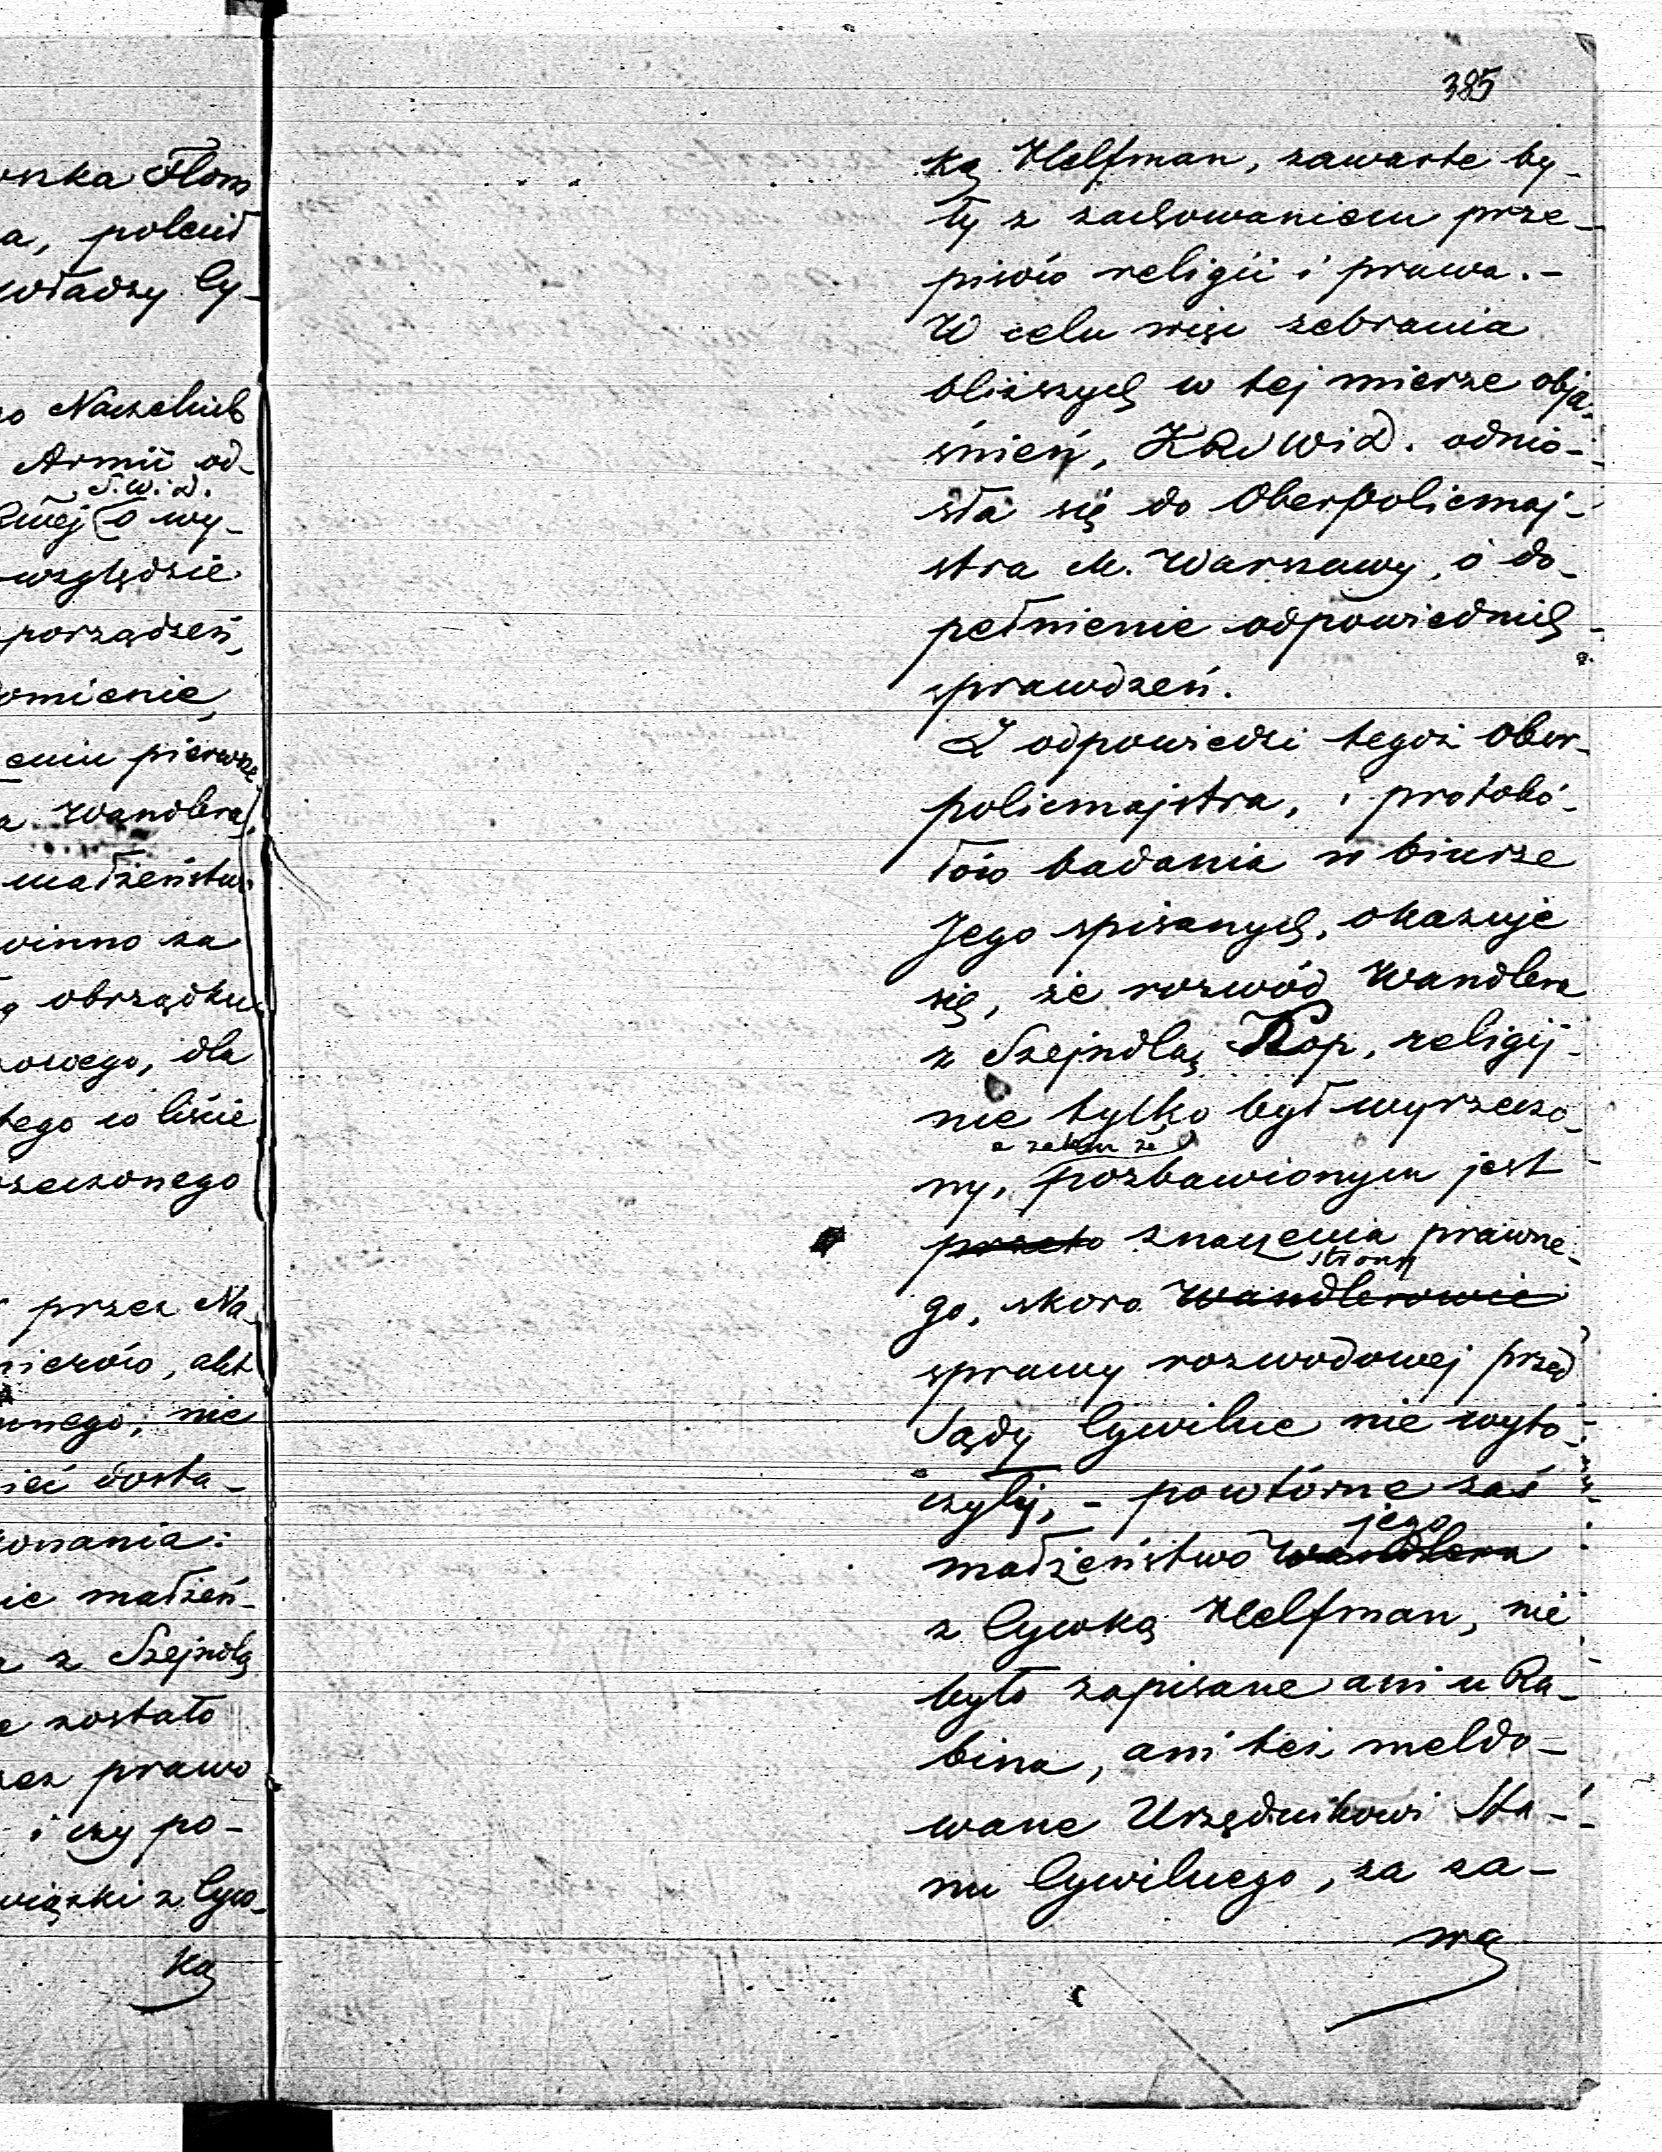 onka Flom
a, polecił
władzy Cy-
o Naczelnik
Armii od-
S. W. i D.
o wy-
względzie
porządzeń,
omienie,
eniu pierwsze
a Wandlera,
małżeństwo
winno za
obrządku
owego, dla
tego w liście
rzeczonego
przez Na-
nierów, akt
nnego, nie
ieć dosta-
konania:
ie małżeń-
a z Szejndlą
e zostało
zez prawo
i czy po-
wiązki z Cyw-
ką
385
ką Helfman, zawarte by-
ły z zachowaniem prze-
pisów religii i prawa. -
W celu więc zebrania
bliższych w tej mierze obja-
śnień, KRSWiD. odnio-
sła się do Oberpolicmaj-
stra M. Warszawy, o do-
pełnienie odpowiednich
sprawdzeń.
Z odpowiedzi tegoż Ober-
policmajstra, i protokó-
łów badania w biurze
Jego spisanych, okazuje
się, że rozwód Wandlera
z Szejndlą Kop, religij-
nie tylko był wyrzeczo-
a zatem że
ny, pozbawionym jest
przeto znaczenia prawne-
strony
go, skoro Wandlerowie
sprawy rozwodowej przed
Sądy Cywilne nie wyto-
czyły, - powtórne zaś
jego
małżeństwo Wandlera
z Cywką Helfman, nie
było zapisane ani u Ra-
bina, ani też meldo-
wane Urzędnikowi Sta-
nu Cywilnego, za za-
wa